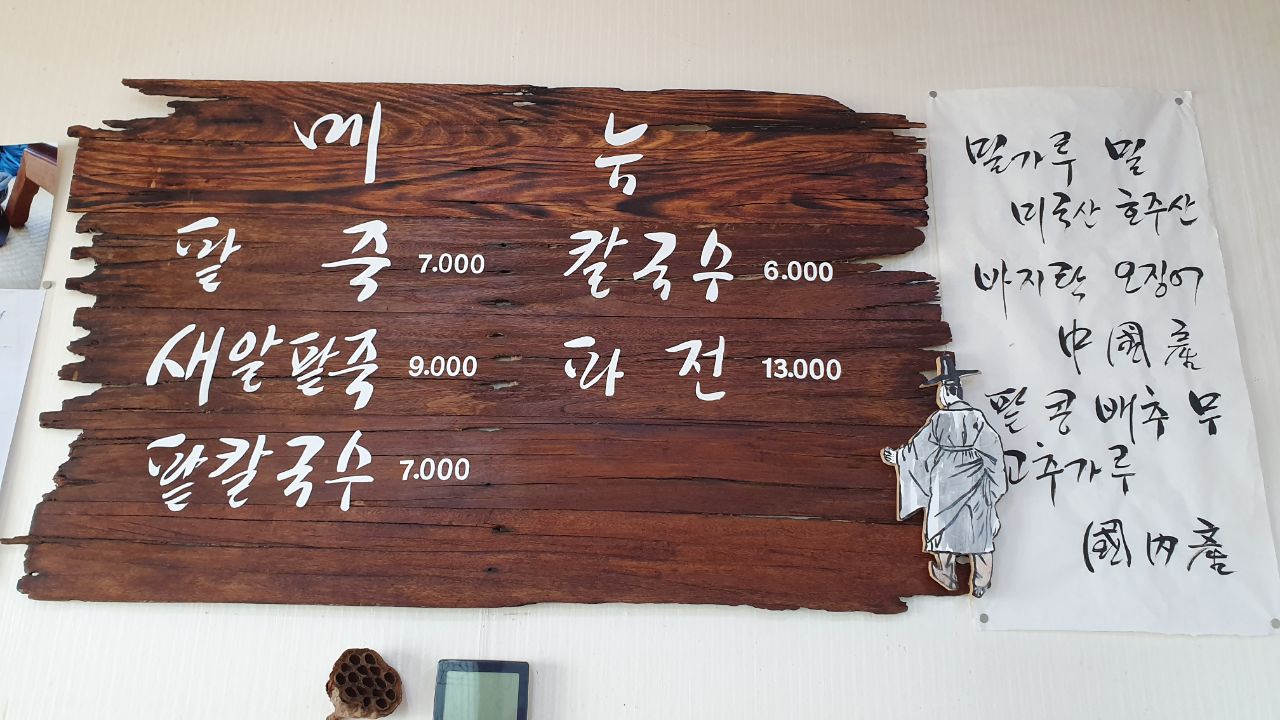 메 뉴
팥 죽 7.000
칼국수 6.000
새알팥죽 9.000
파 전 13.000
팥칼국수 7.000
밀가루 밀
미국산 호주산
바지락 오징어
中國産
팥 콩 배추 무
고추가루
國内産